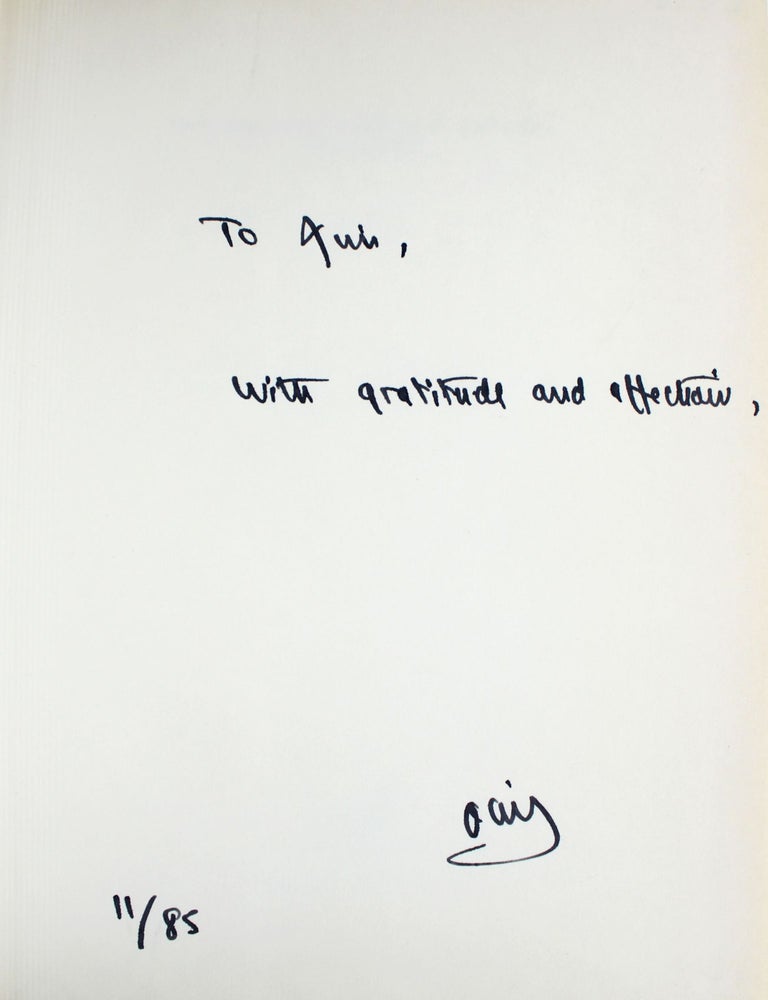 To
With gratitude and affection,
11/85